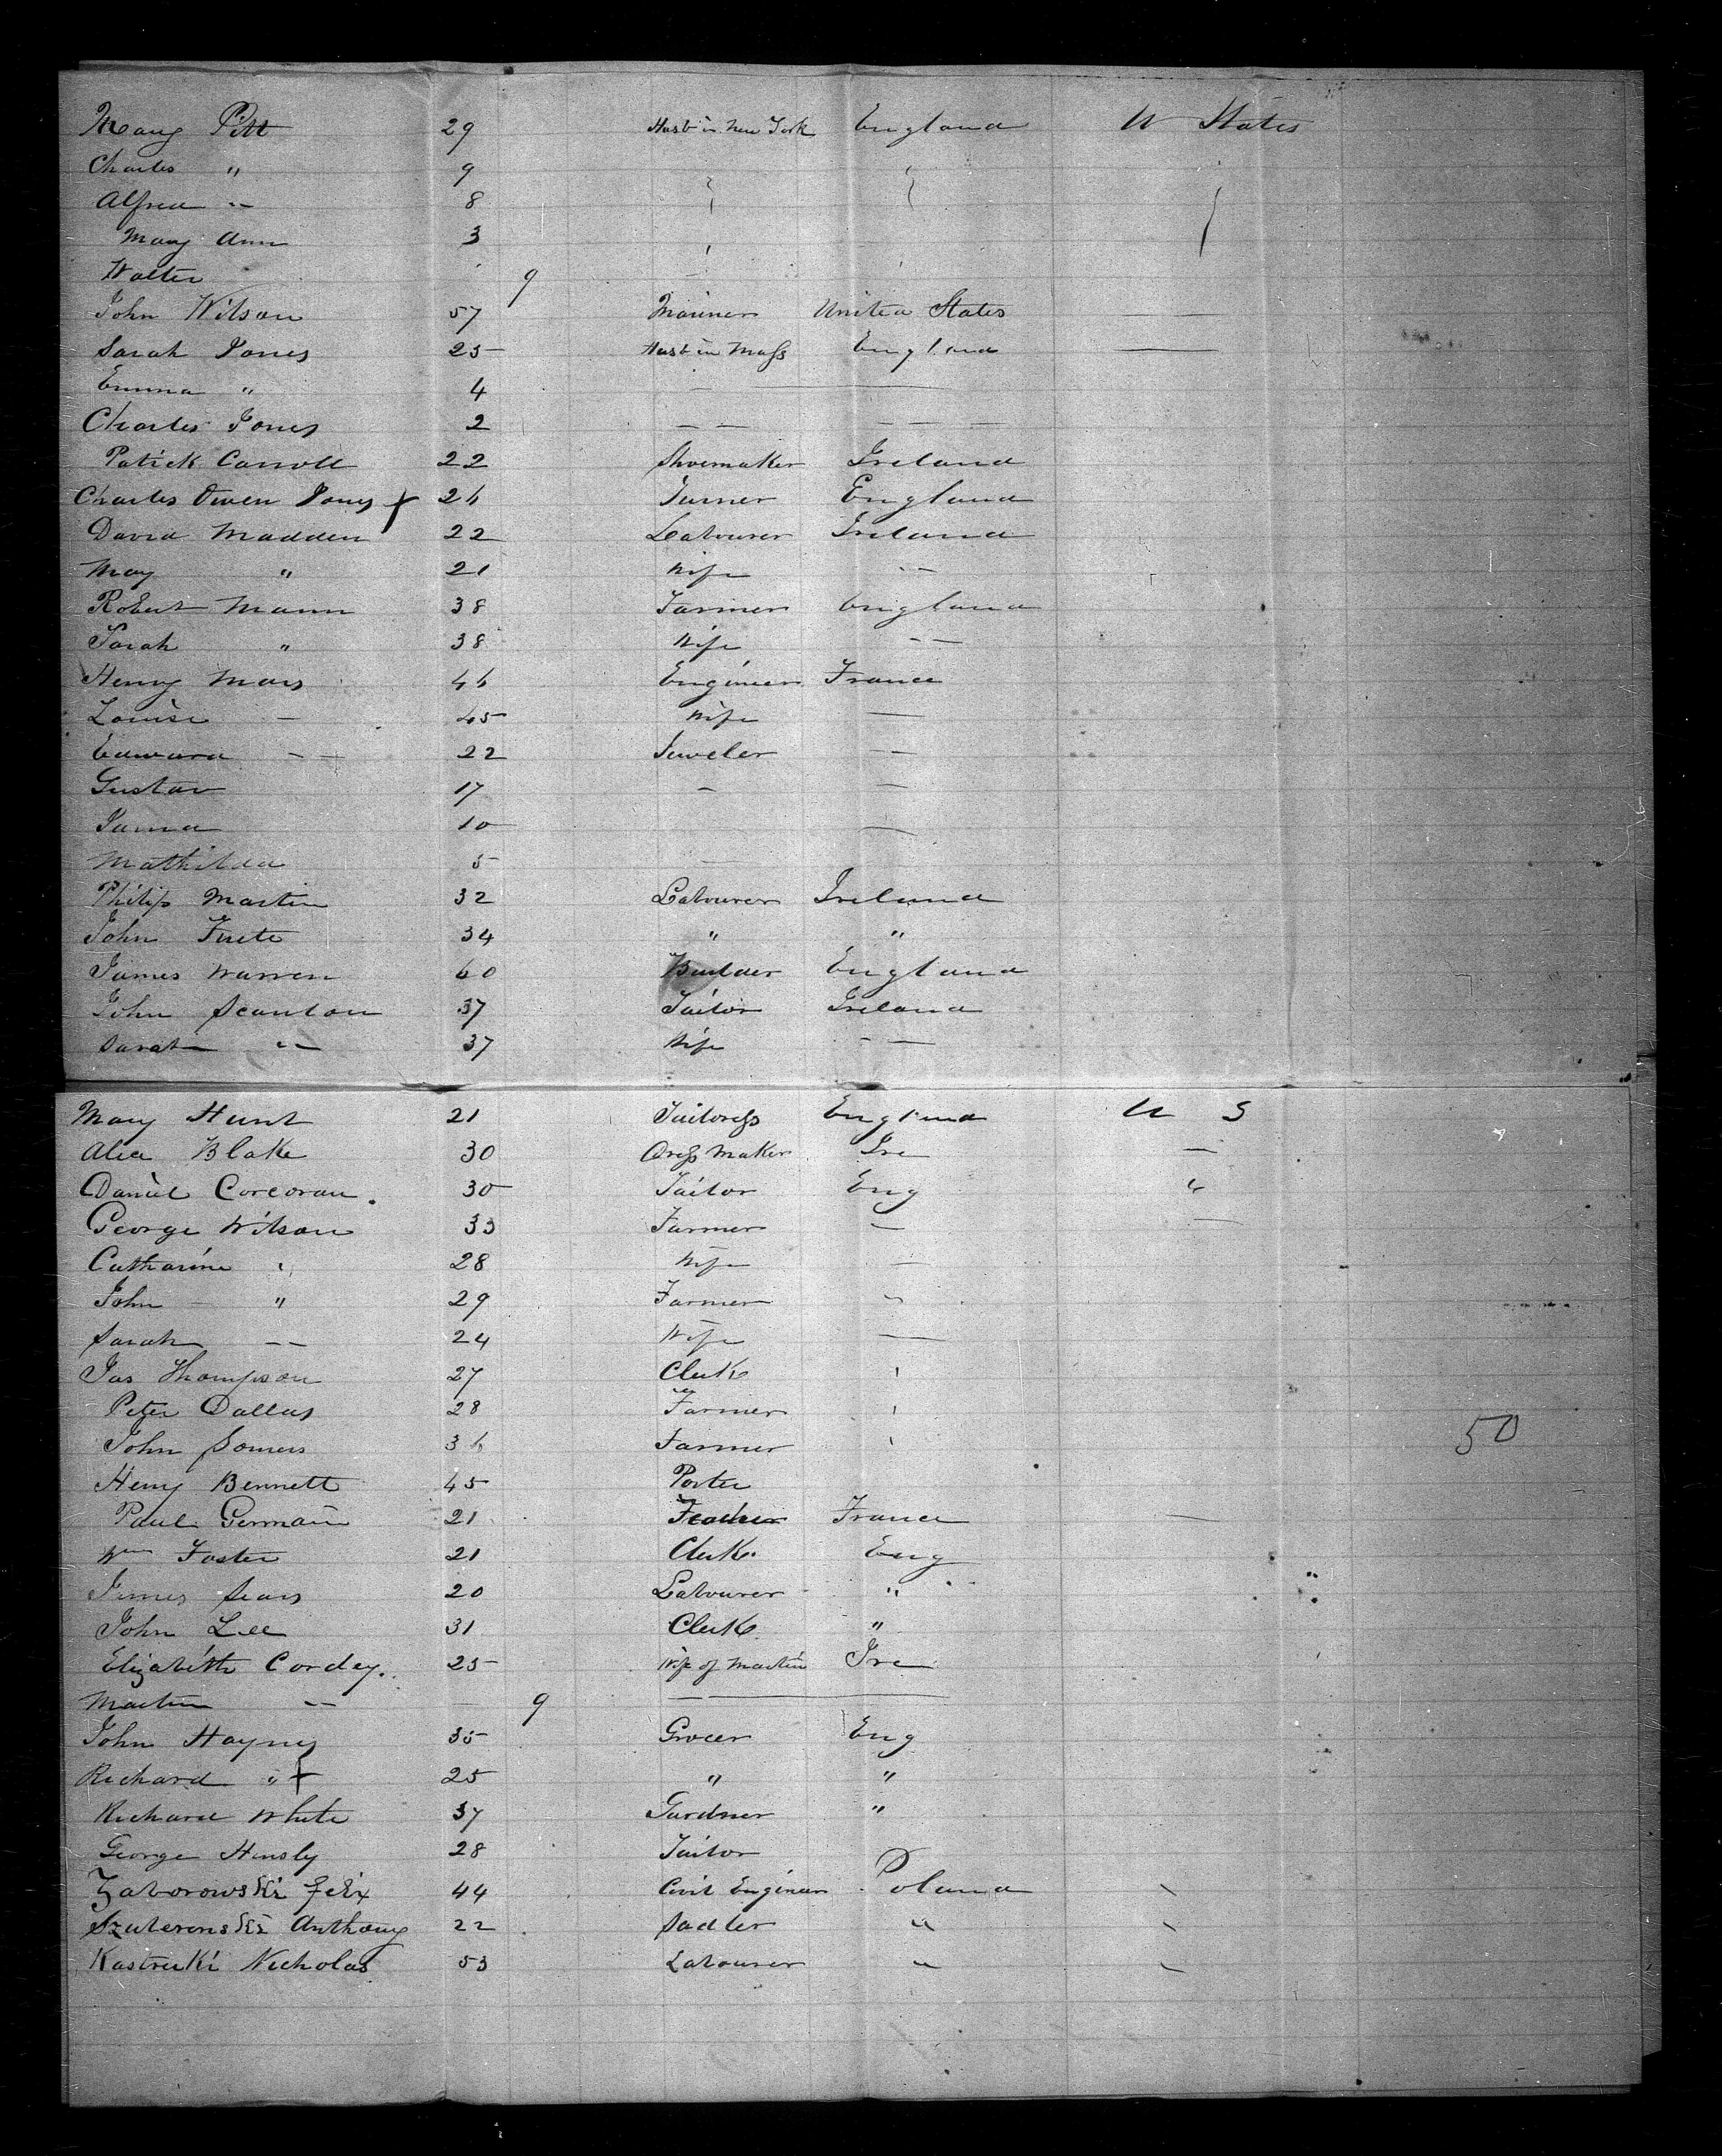 Mary Pitt 29 Husb in New York England U States
Charles " 9
Alfred " 8
Mary Ann 3
Walter 9
John Wilson 57 Mariner United States —
Sarah Jones 25 Husb in Mass England —
Emma " 4 —
Charles Jones 2 — —
Patick Carroll 22 Shoemaker Ireland
Charles Owen Jones + 26 Turner England
David Madden 22 Labourer Ireland
May " 21 Wife — —
Robert Mann 38 Farmer England
Sarah " 38 Wife — —
Henry Mars 46 Engineer France
Louise — 45 Wife —
Edward — — 22 Jeweler — —
Gustav 17 — —
10 —
Mathilda 5 —
Philip Martin 32 Labourer Ireland
John 34 " "
James Warren 60 Builder England
John Scanlon 37 Tailor Ireland
Sarah — — 37 Wife — —
Mary Hunt 21 Tailoress England U S
Alice Blake 30 Dress Maker Ire —
Daniel Corcoran . 30 Tailor Eng "
George Wilson 33 Farmer — —
Catharine " 28 Wife —
John " 29 Farmer "
Sarah — — 24 Wife —
Jas Thompson 27 Clerk '
Peter Dallas 28 Farmer '
John Somers 36 Farmer ' 50
Henry Bennett 45 Porter
Paul Germain 21 France —
Wm Foster 21 Clerk Eng
James Sears 20 Labourer "
John Lee 31 Clerk "
Elizabeth Cordey . 25 Wife of Martin Ire
Martin — — 9 —
John Haynes 35 Grocer Eng
Richard " + 25 " "
Richard White 37 Gardner "
George Hensly 28 Tailor
Zaborowski Felix 44 Civil Engineer Poland
Anthony 22 Sadler "
Kastrucki Nicholas 53 Labourer "